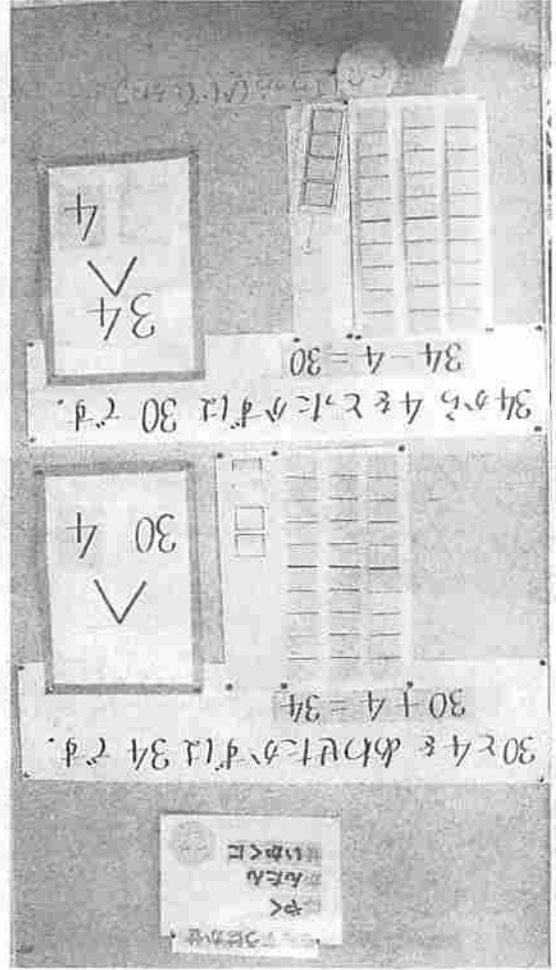 はやく
かんたん
せいかくに
30と4を あわせたかずは 34 です。
30+4=34
30 4
34から 4をとったかずは 30 です。
34-4=30
34
4